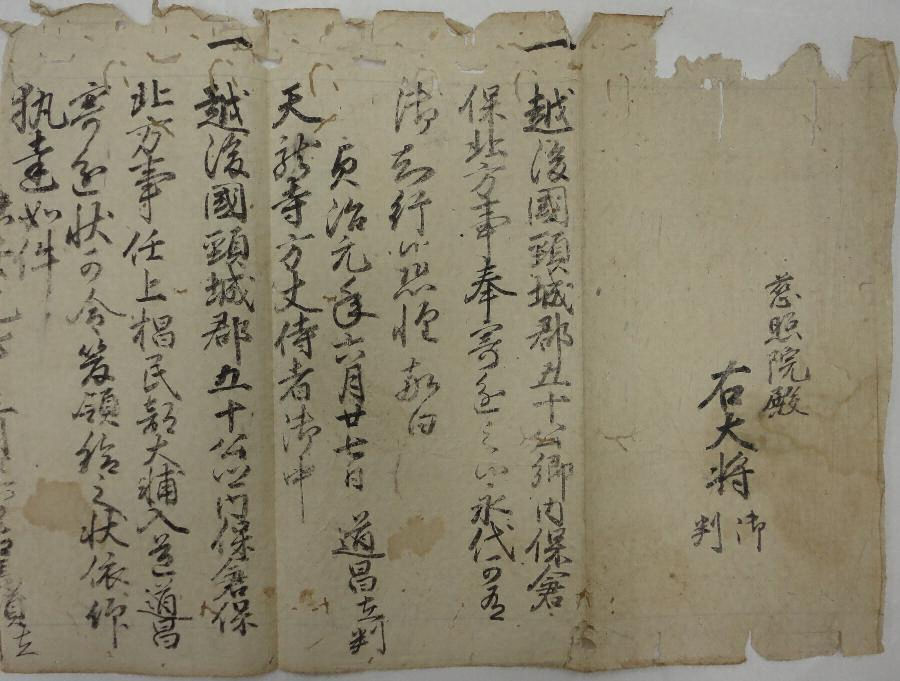 慈照院殿
右大将 御判
一
越後國頸城郡五十公郷内保倉
保北方事奉寄進之候永代可有
御知行候恐惶敬白
貞治元年六月廿七日 道昌在判
天龍寺方丈侍者御中
一
越後國頸城郡五十公郷内保倉保
北方事任上椙民部大輔入道道昌
寄進状可令管領給之状依仰
執達如件